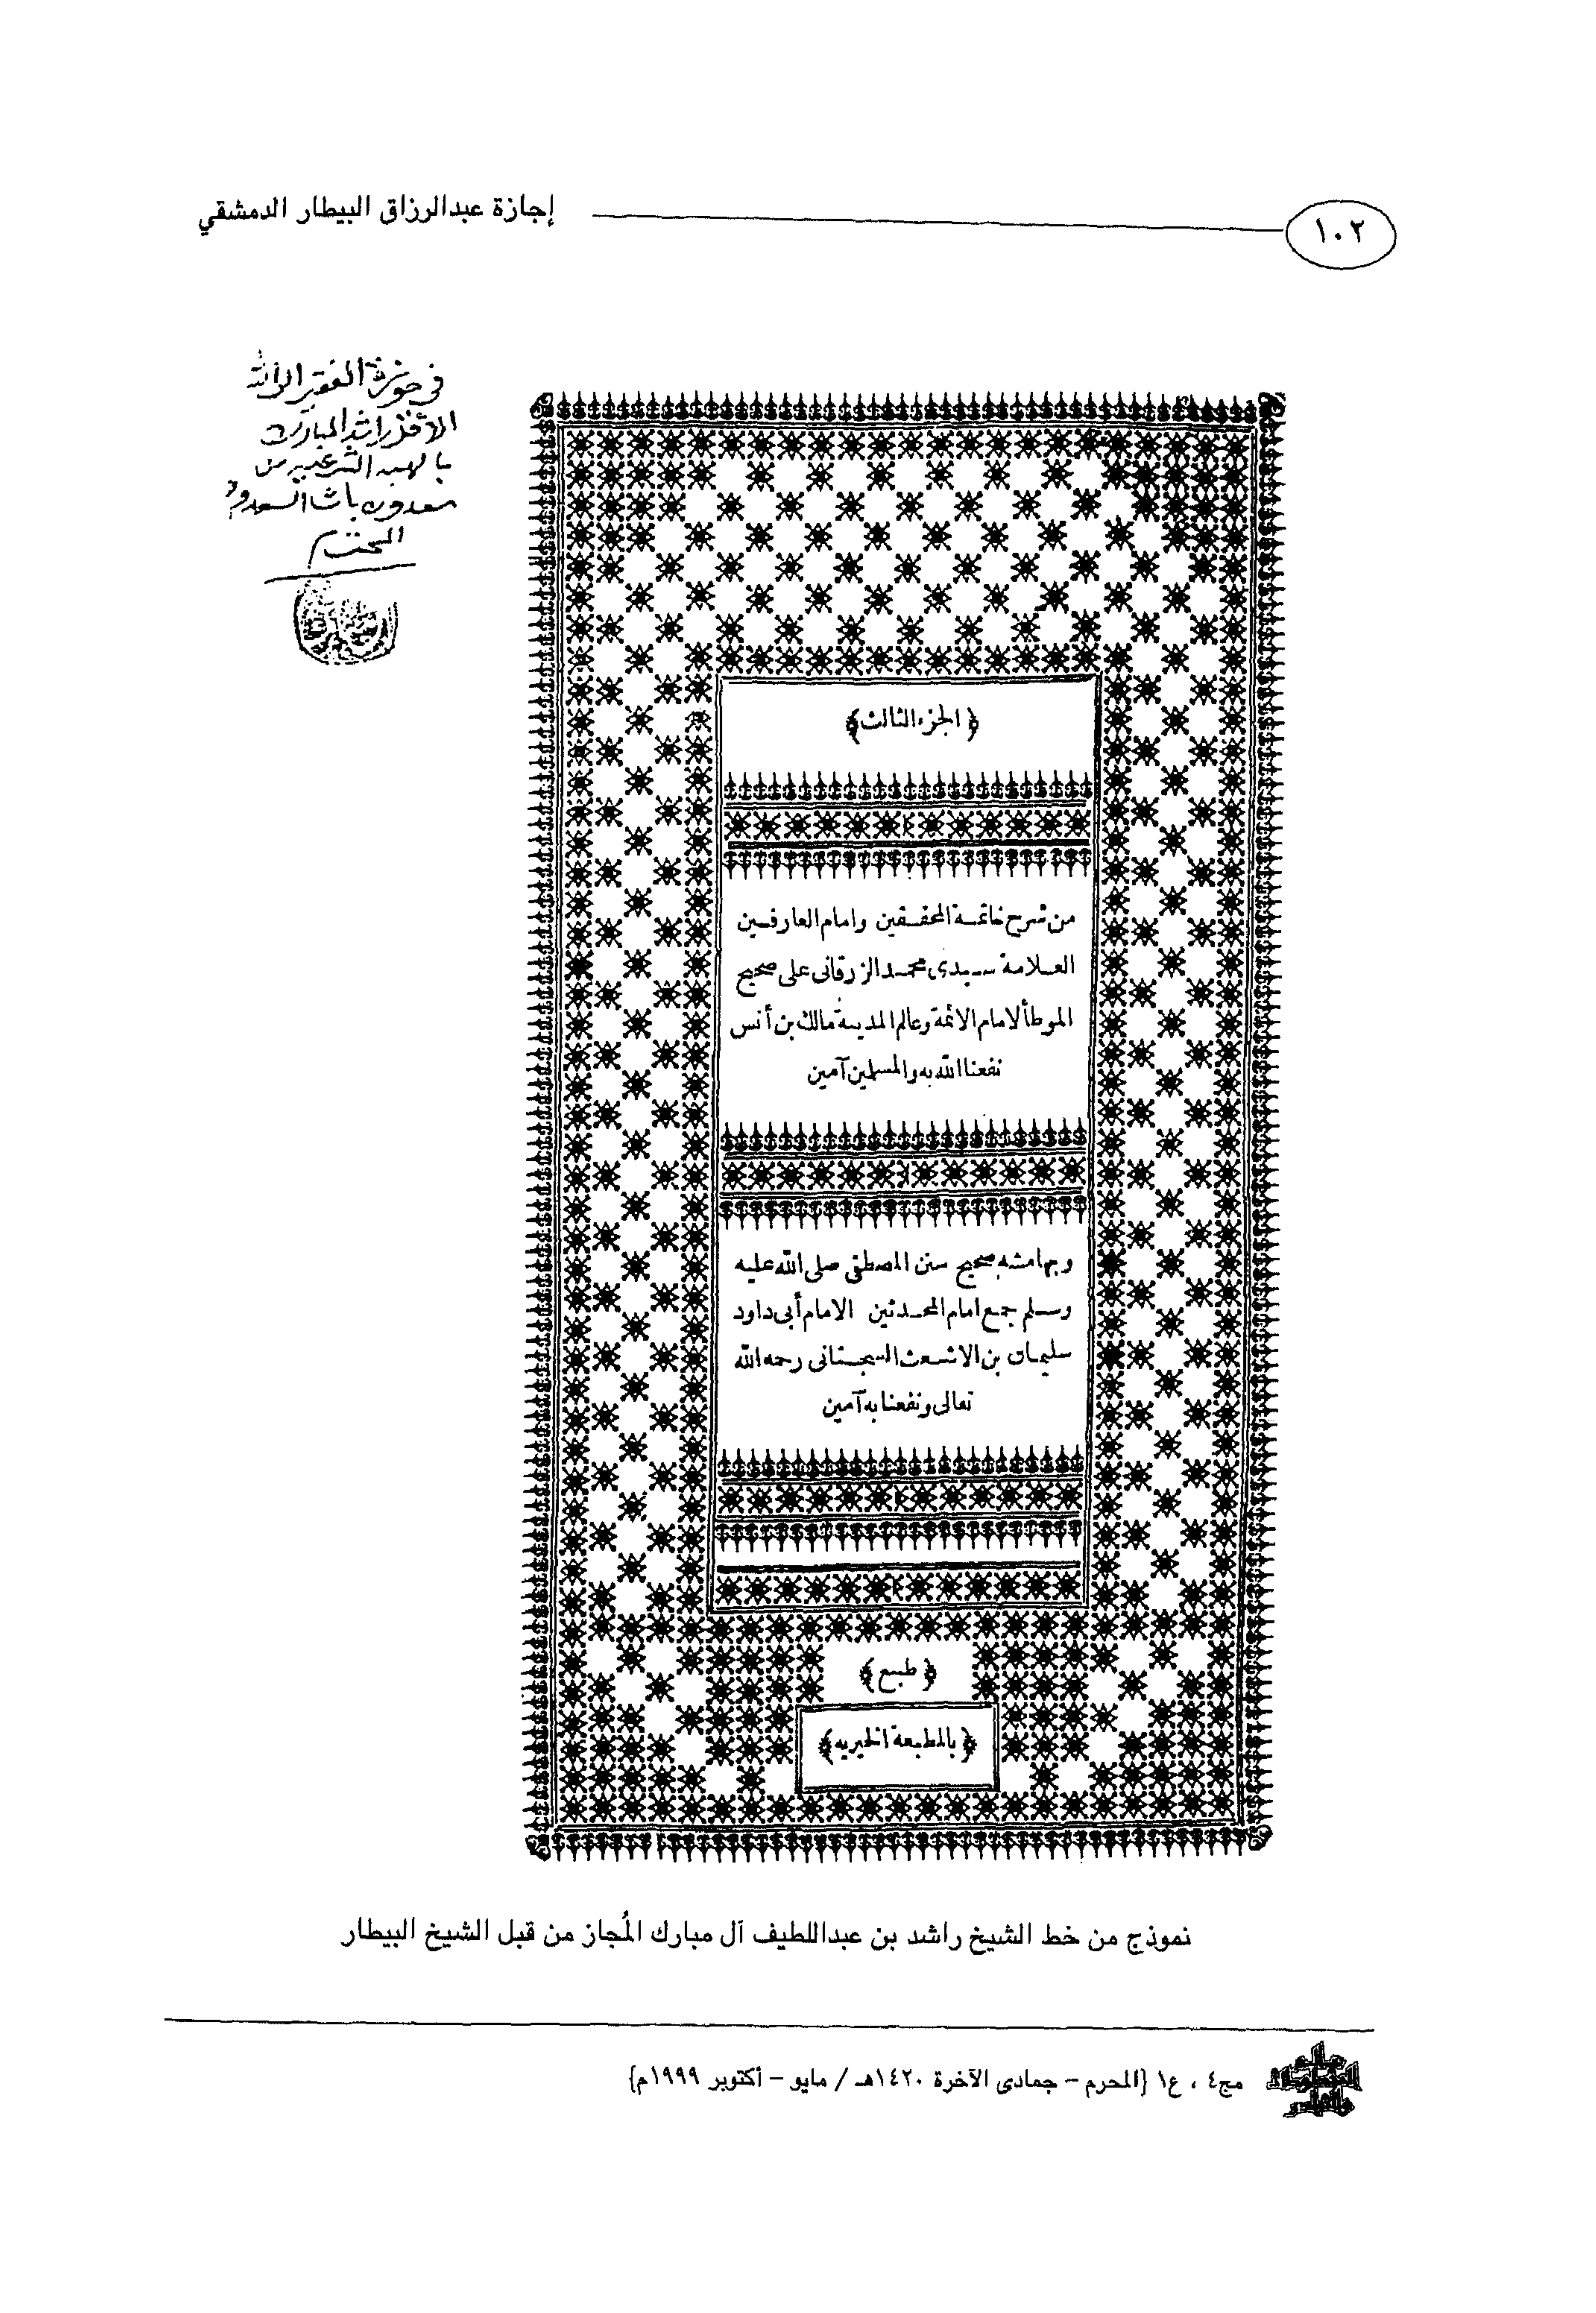 ١٠٢
إجازة عبدالرزاق البيطار الدمشقي
في حوزة الفقير الى الله
الافقر راشد المبارك
بالهبه الشرعيه من
سعدون باشا السعدون
المحترم
﴿الجزء الثالث﴾
من شرح خاتمة المحققين وامام العارفين
العلامة سيدى محمد الزرقانى على صحيح
الموطأ لامام الائمة وعالم المدينة مالك بن أنس
نفعنا الله به والمسلمين آمين
وبهامشه صحيح سنن المصطفى صلى الله عليه
وسلم جمع امام المحدثين الامام أبى داود
سليمان بن الاشعث السجستانى رحمه الله
تعالى ونفعنا به آمين
﴿طبع﴾
﴿بالمطبعة الخيريه﴾
نموذج من خط الشيخ راشد بن عبداللطيف آل مبارك المُجاز من قبل الشيخ البيطار
عالم
المخطوطات
والنوادر
مج٤ ، ع١ {المحرم - جمادى الآخرة ١٤٢٠هـ / مايو - أكتوبر ١٩٩٩م}